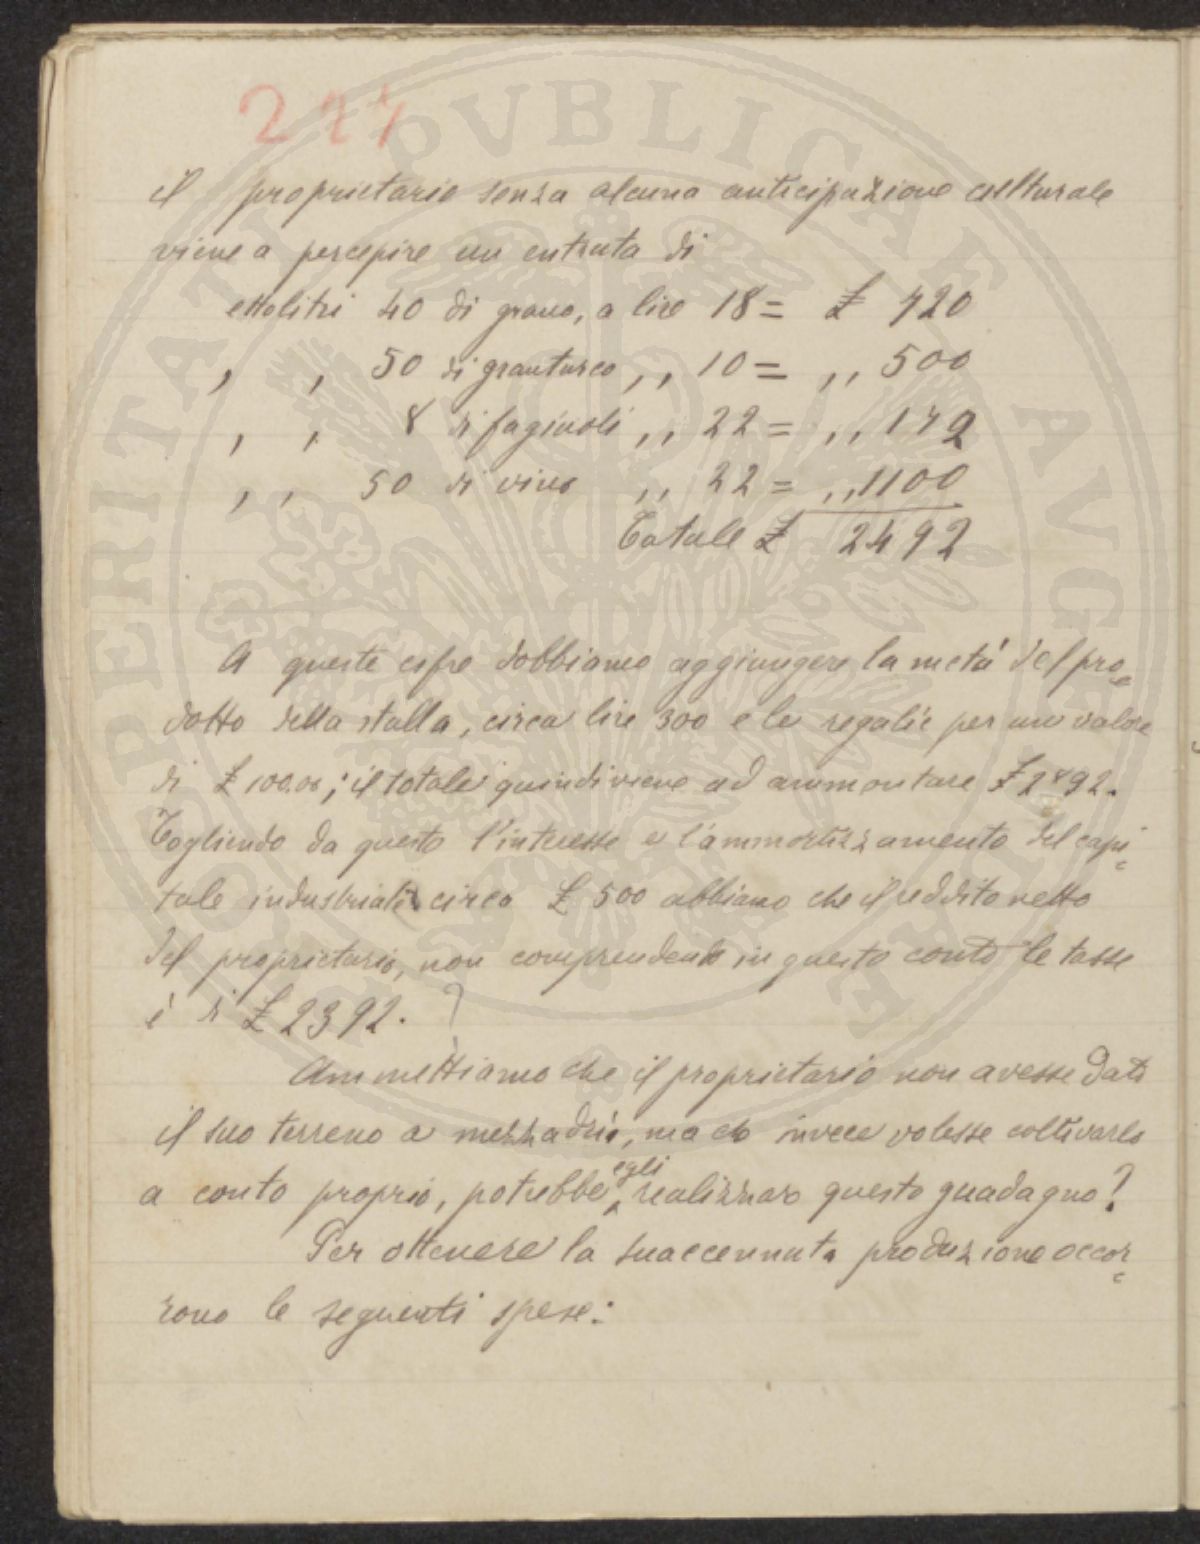 227
il proprietario senza alcuna anticipazione cullturale
viene a percepire un entrata di
ettolitri 40 di grano, a lire 18 = £ 720
, , 50 di granturco ,, 10 = ,, 500
, , 8 di fagiuoli ,, 22 = ,, 172
, , 50 di vino ,, 22 = ,, 1100
Totale £ 2492
A queste cifre dobbiamo aggiungere la metà del pro=
dotto della stalla, circa lire 300 e le regalie per un valore
di £ 100.00; il totale quindi viene ad ammontare £ 2892.
Togliendo da questo l'interesse e l'ammortizzamento del capi=
tale industriale circa £ 500 abbiamo che il reddito netto
del proprietario, non comprendendo in questo conto le tasse
è di £ 2392. ?
Ammettiamo che il proprietario non avesse dato
il suo terreno a mezzadria, ma che invece volesse coltivarlo
a conto proprio, potrebbe egli realizzare questo guadagno?
Per ottenere la suaccennata produzione occor=
rono le seguenti spese:
PERITATI PVBLICAE AVGE